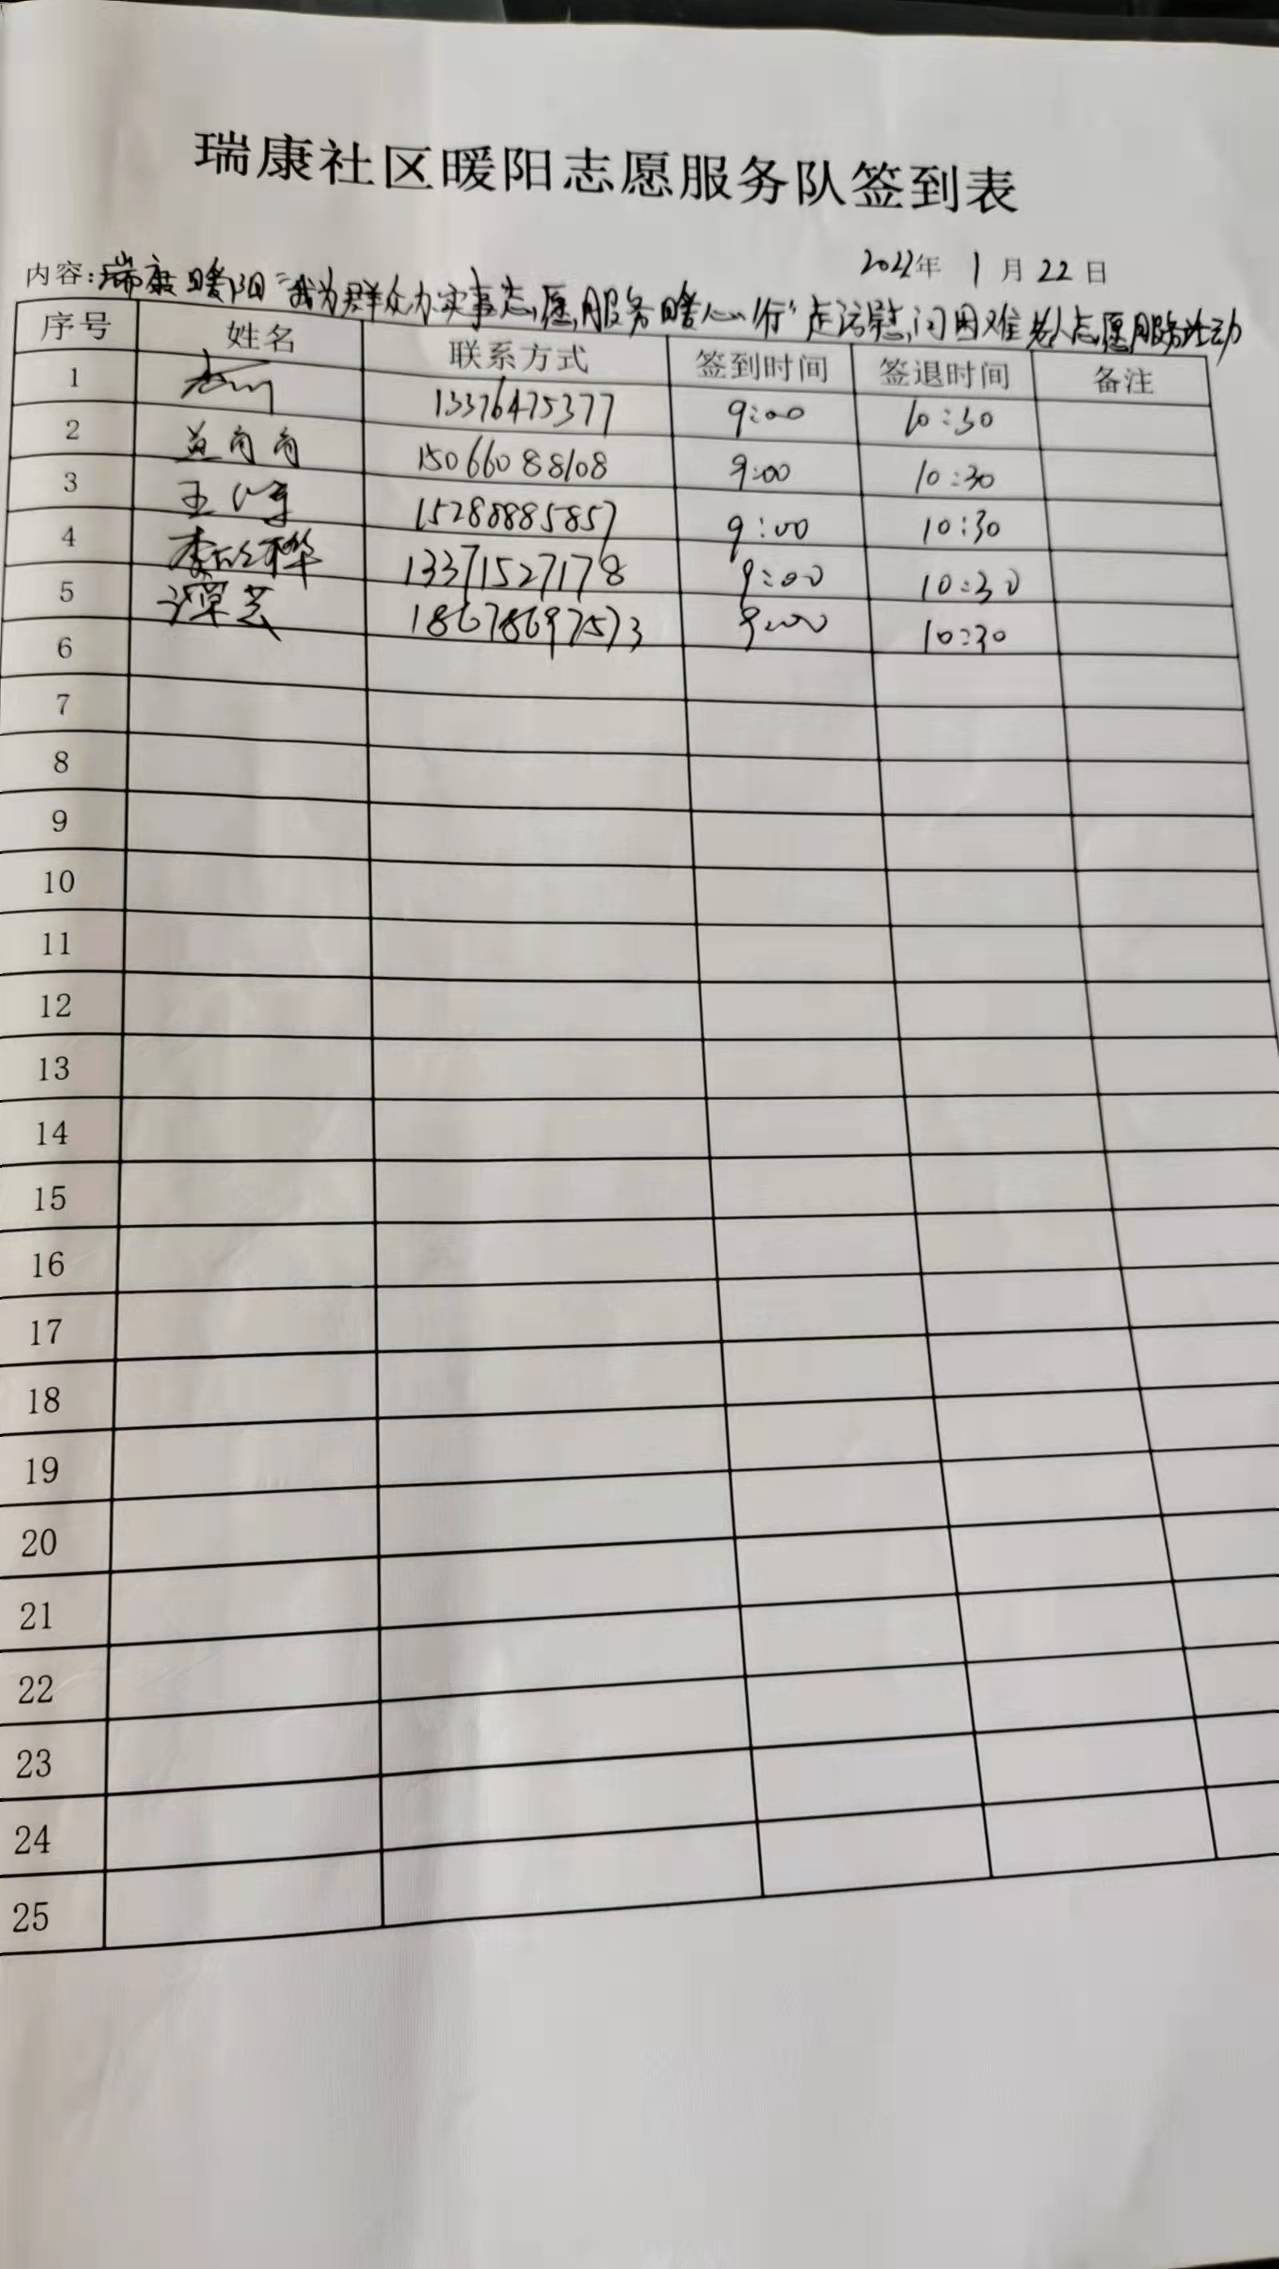 瑞康社区暖阳志愿服务队签到表
2022年 1月22日
内容:瑞康暖阳"我为群众办实事志愿服务暖心行"走访慰问困难老人志愿服务活动
序号 姓名 联系方式 签到时间 签退时间 备注
1 13376475377 9:00 10:30
2 15066088108 9:00 10:30
3 王 15288885857 9:00 10:30
4 李欣桦 13371527178 9:00 10:30
5 谭芸 18678697573 9:00 10:30
6
7
8
9
10
11
12
13
14
15
16
17
18
19
20
21
22
23
24
25